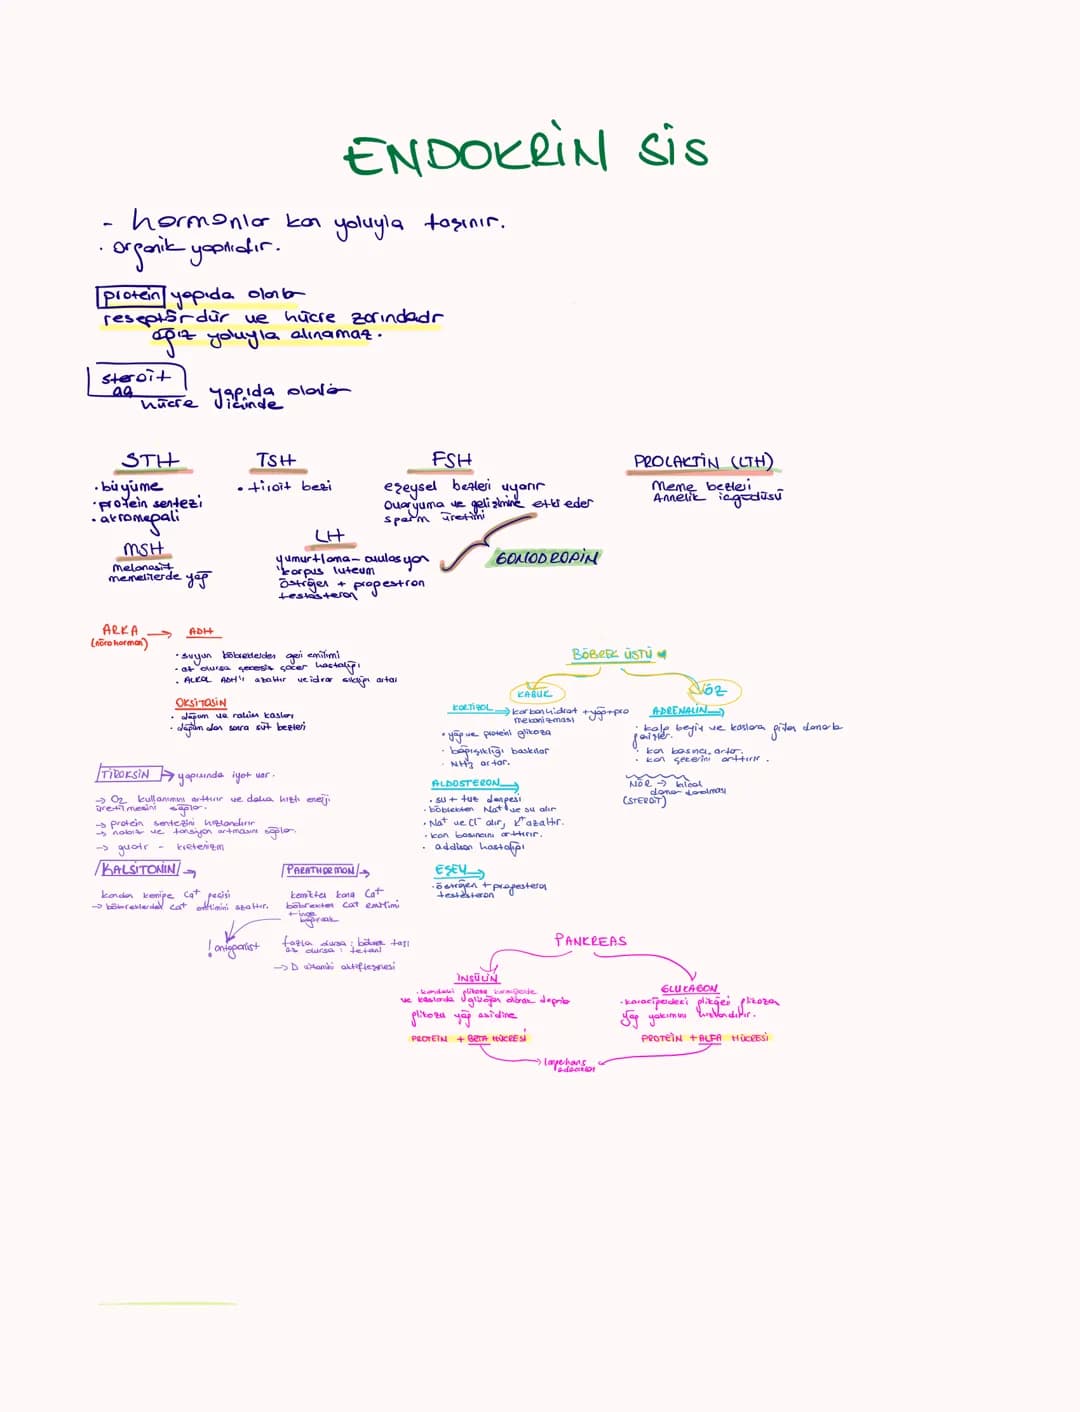 ENDOKRİN SİS
- hormonlar kan yoluyla taşınır.
· organik yapılıdır.
protein yapıda olanlar
reseptördür ve hücre zarındadır
ağız yoluyla alınamaz.
steroit
yapıda olanlar
hücre içinde
STH
· büyüme
· protein sentezi
· akromegali
TSH
· tiroit bezi
FSH
eşeysel bezleri uyarır
ovaryuma ve gelişimine etki eder
sperm üretimi
PROLAKTİN (LTH)
Meme bezleri
Annelik içgüdüsü
MSH
melanosit
memelilerde yağ
LH
yumurtlama - ovulasyon
korpus luteum
östrojen + progestron
testosteron
GONODROPİN
ARKA
(nörohormon)
ADH
· suyun böbreklerden geri emilimi
· az olursa şekersiz şeker hastalığı
· ALKOL ADH'ı azaltır ve idrar sıklığı artar
OKSİTOSİN
· doğum ve rahim kasları
· doğumdan sonra süt bezleri
BÖBREK ÜSTÜ
KABUK
KORTİZOL → karbonhidrat + yağ + pro
mekanizması
· yağ ve proteini glikoza
· bağışıklığı baskılar
· NH3 artar.
ALDOSTERON →
· su + tuz dengesi
· böbrekten Na+ ve su alır
· Na+ ve Cl- alır, K+ azaltır.
· kan basıncını arttırır.
· addison hastalığı
EŞEY →
· östrojen + progesteron
testosteron
ÖZ
ADRENALİN →
· kalp beyin ve kaslara giden damarlar
genişler.
· kan basıncı artar.
· kan şekerini arttırır.
NÖR → kılcal
damar daralması
(STEROİT)
TİROKSİN → yapısında iyot var.
→ O2 kullanımını arttırır ve daha hızlı enerji
üretilmesini sağlar.
→ protein sentezini hızlandırır
→ nabız ve tansiyon artmasını sağlar.
→ guatr - kretenizm
KALSİTONİN →
kandan kemiğe Ca+ geçişi
→ böbreklerden Ca+ emilimini azaltır.
PARATHORMON →
kemikten kana Ca+
böbrekten Ca+ emilimi
+ ince
bağırsak
! antagonist
fazla olursa : böbrek taşı
az olursa : tetani
→ D vitamini aktifleşmesi
PANKREAS
İNSÜLİN
· kandaki glikozu karaciğerde
ve kaslarda glikojen olarak depolar
glikozu yağ asidine
PROTEİN + BETA HÜCRESİ
GLUKAGON
· karaciğerdeki glikojeni glikoza
yağ yakımını hızlandırır.
PROTEİN + ALFA HÜCRESİ
→ langerhans
adacıkları